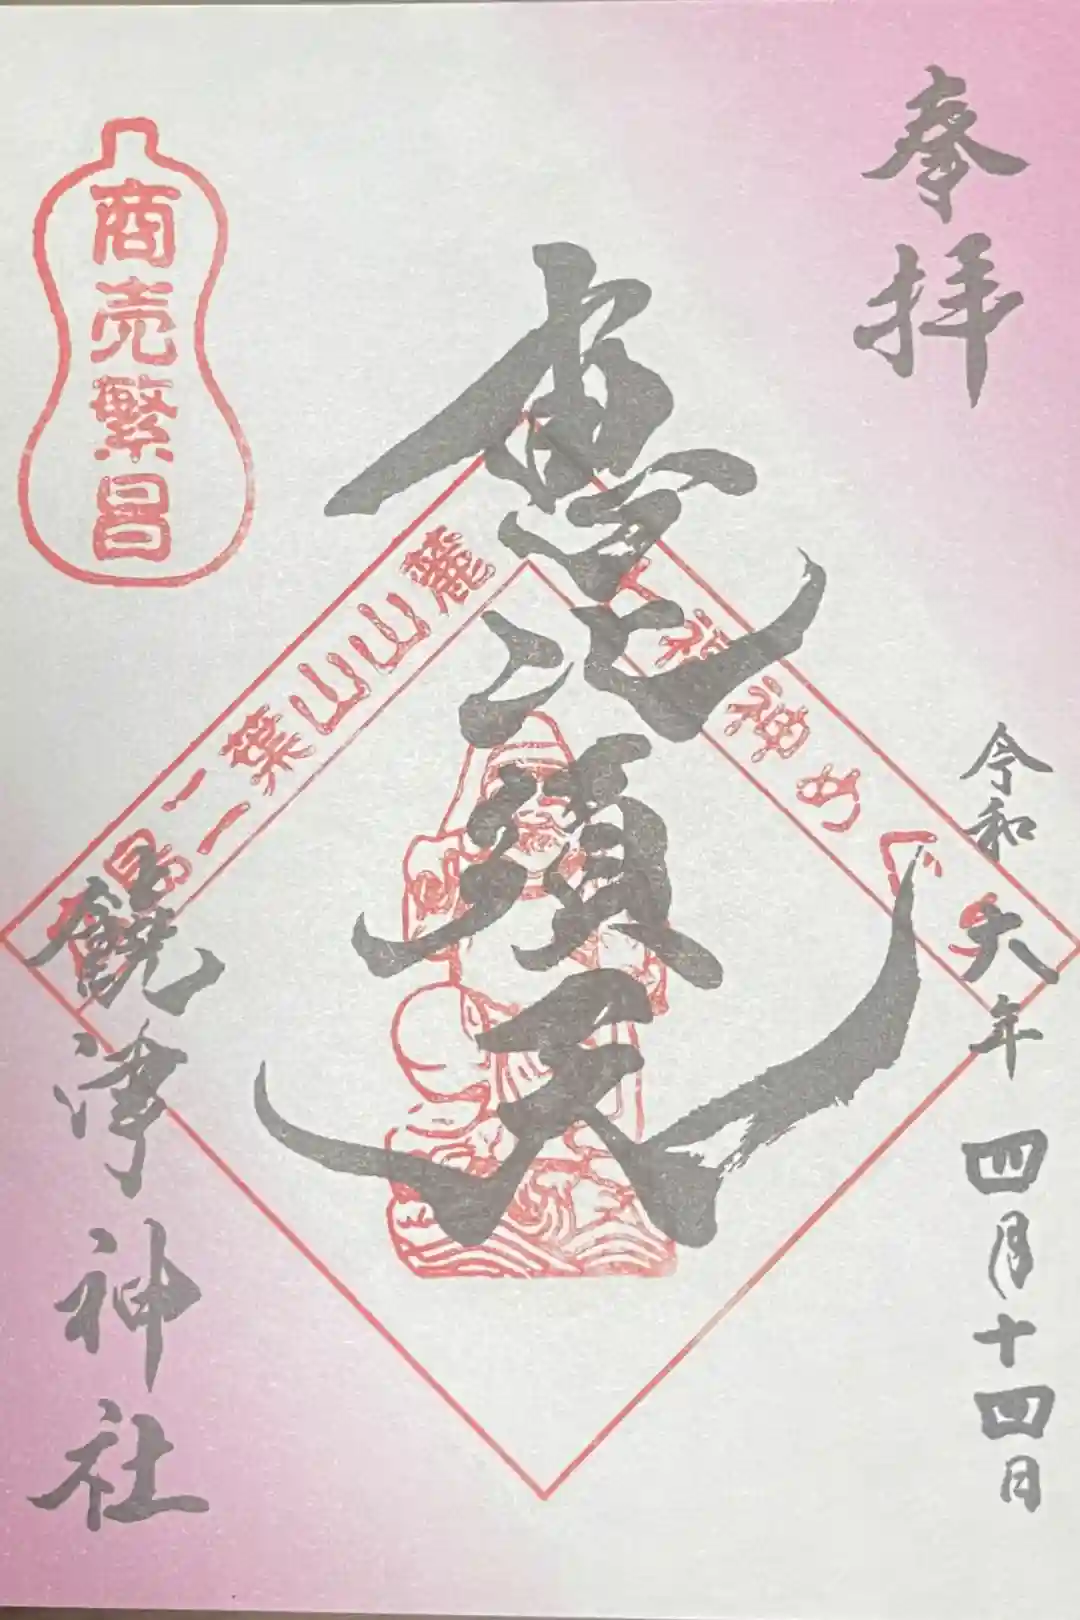 奉拝
令和六年四月十四日
恵比須天
七福神めぐ
島二葉山山麓
商売繁昌
饒津神社